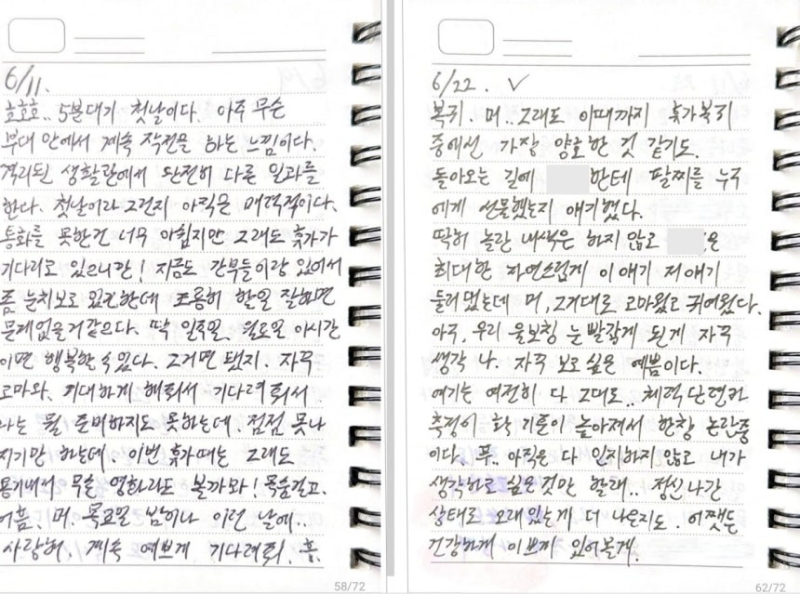 6/11.
호호호.. 5분대기 첫날이다. 아주 무슨
부대 안에서 계속 작전을 하는 느낌이다.
격리된 생활관에서 완전히 다른 일과를
한다. 첫날이라 그런지 아직은 매력적이다.
통화를 못한건 너무 아쉽지만 그래도 휴가가
기다리고 있으니만! 지금도 간부들이랑 있어서
좀 눈치보고 있긴한데 조용히 할일 잘하면
문제없을거같으다. 딱 일주일, 월요일 이시간
이면 행복할 수 있다. 그거면 됐지. 자꾸
고마와. 기대하게 해줘서 기다려줘서.
나는 뭘 준비하지도 못하는데. 점점 못나
지기만 하는데. 이번 휴가때는 그래도
용기내서 무슨 영화라도 볼까봐! 목숨걸고.
어흠. 머. 목요일 밤이나 이런 날에..
사랑해. 계속 예쁘게 기다려줘. 흥.
58/72
6/22. ✓
복귀. 머.. 그래도 이때까지 휴가복귀
중에선 가장 양호한 것 같기도.
돌아오는 길에 한테 팔찌를 누구
에게 선물했는지 얘기했다.
딱히 놀란 내색은 하지 않고 은
최대한 자연스럽게 이 얘기 저 얘기
둘러댔는데 머, 그거대로 고마웠고 귀여웠다.
아주, 우리 울보칭 눈 빨갛게 된게 자꾸
생각 나. 자꾸 보고싶은 예쁨이다.
여기는 여전히 다 그대로.. 체력단련과
측정이 확 기준이 높아져서 한창 논란중
이다. 푸.. 아직은 다 인지하지 않고 내가
생각하고 싶은 것만 할래.. 정신나간
상태로 오래있는게 더 나은지도. 어쨋든
건강하게 이쁘게 있어볼게.
62/72